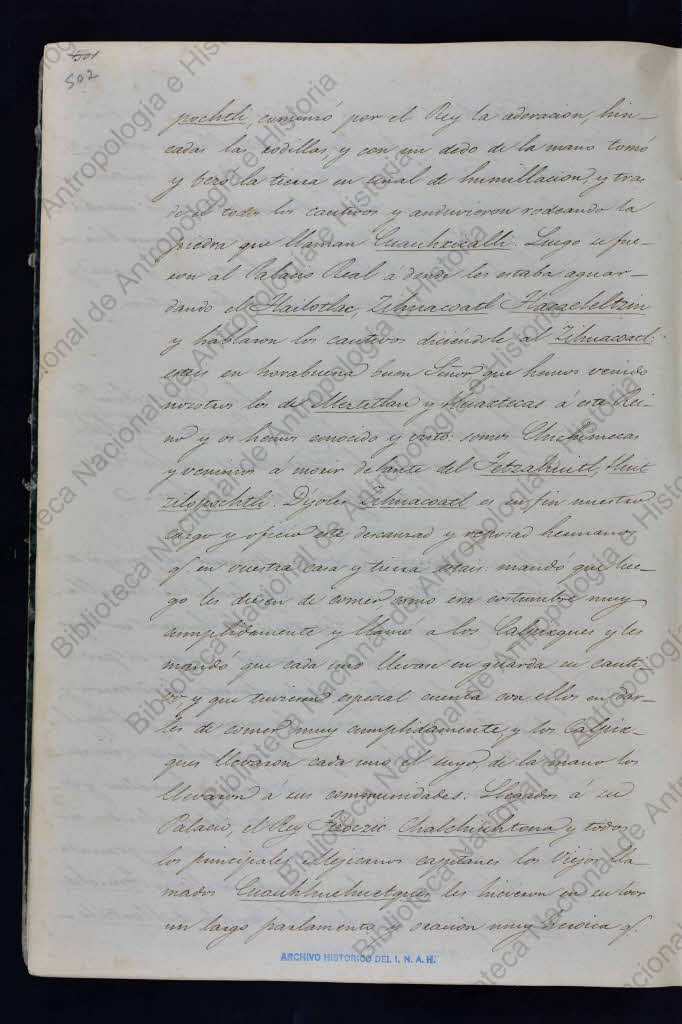 501
502
pochtli, comenzó por el Rey la adoracion, hin-
cadas las rodillas, y con un dedo de la mano tomó
y besó la tierra en señal de humillacion, y tras
de él todos los cautivos y anduvieron rodeando la
piedra que llaman Cuauhxicalli. Luego se fue-
ron al Palacio Real á donde les estaba aguar-
dando el Zihuacoatl
y hablaron los cautivos diciéndole al Zihuacoatl:
esteis en horabuena buen Señor que hemos venido
nosotros los de Meztitlan y Huaxtecas á este Rei-
no y os hemos conocido y visto: somos Chichimecas
y venimos a morir delante del Tetzahuitl, Huit
zilopochtli. Dijoles Zihuacoatl es en fin nuestro
cargo y oficio este descansad y reposad hermanos
q. en vuestra casa y tierra estais: mandó que lue-
go les diesen de comer como era costumbre muy
cumplidamente y llamó a los Calpixques y les
mandó que cada uno llevase en guarda su cauti-
vo y que tuviesen especial cuenta con ellos en dar-
les de comer muy cumplidamente, y los Calpix-
ques llevaron cada uno el suyo, de la mano los
llevaron á sus comunidades. Llegados á su
Palacio, el Rey Tizoczic Chalchiuhtona y todos
los principales Mejicanos capitanes los Viejos lla-
mados Cuauhhuehuetques les hicieron en su loor
un largo parlamento y oracion muy heroica q.
ARCHIVO HISTORICO DEL I. N. A. H.
Biblioteca Nacional de Antropología e Historia